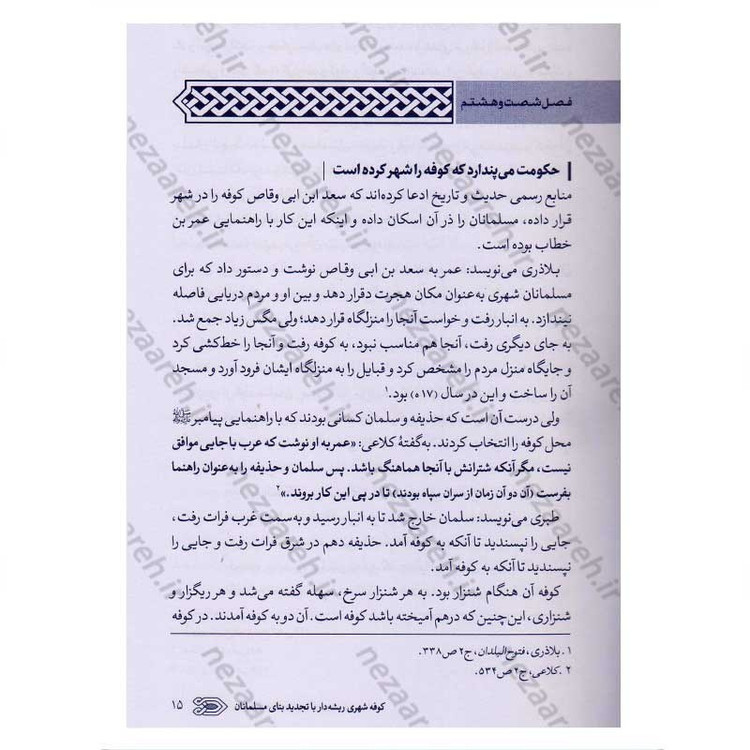 فصل شصت و هشتم
حکومت می‌پندارد که کوفه را شهر کرده است
منابع رسمی حدیث و تاریخ ادعا کرده‌اند که سعد ابن ابی وقاص کوفه را در شهر
قرار داده، مسلمانان را در آن اسکان داده و اینکه این کار با راهنمایی عمر بن
خطاب بوده است.
بلاذری می‌نویسد: عمر به سعد بن ابی وقاص نوشت و دستور داد که برای
مسلمانان شهری به‌عنوان مکان هجرت دقرار دهد و بین او و مردم دریایی فاصله
نیندازد. به انبار رفت و خواست آنجا را منزلگاه قرار دهد؛ ولی مگس زیاد جمع شد.
به جای دیگری رفت، آنجا هم مناسب نبود، به کوفه رفت و آنجا را خط‌کشی کرد
و جایگاه منزل مردم را مشخص کرد و قبایل را به منزلگاه ایشان فرود آورد و مسجد
آن را ساخت و این در سال (۱۷ه) بود.۱
ولی درست آن است که حذیفه و سلمان کسانی بودند که با راهنمایی پیامبر ﷺ
محل کوفه را انتخاب کردند. به‌گفتهٔ کلاعی: «عمر به او نوشت که عرب با جایی موافق
نیست، مگر آنکه شترانش با آنجا هماهنگ باشد. پس سلمان و حذیفه را به‌عنوان راهنما
بفرست (آن دو آن زمان از سران سپاه بودند) تا در پی این کار بروند.»۲
طبری می‌نویسد: سلمان خارج شد تا به انبار رسید و به‌سمت غرب فرات رفت،
جایی را نپسندید تا آنکه به کوفه آمد. حذیفه دهم در شرق فرات رفت و جایی را
نپسندید تا آنکه به کوفه آمد.
کوفه آن هنگام شنزار بود. به هر شنزار سرخ، سهله گفته می‌شد و هر ریگزار و
شنزاری، این‌چنین که درهم آمیخته باشد کوفه است. آن دو به کوفه آمدند. در کوفه
۱. بلاذری، فتوح البلدان، ج۲ ص۳۳۸.
۲. کلاعی، ج۲ ص۵۳۴.
کوفه شهری ریشه‌دار با تجدید بنای مسلمانان ۱۵
nezaareh.ir